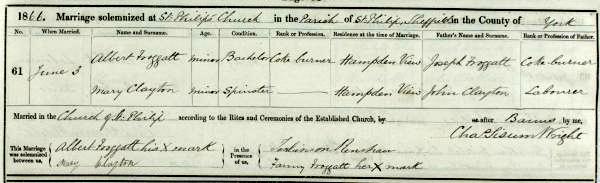 1866. Marriage solemnized at St. Philip's Church in the Parish of St. Philip, Sheffield in the County of York
No. When Married. Name and Surname. Age. Condition. Rank or Profession. Residence at the time of Marriage. Father's Name and Surname. Rank or Profession of Father.
61 June 3 Albert Froggatt minor Bachelor Coke burner Hampden View Joseph Froggatt Coke burner
Mary Clayton minor Spinster Hampden View John Clayton Labourer
Married in the Church of St. Philip according to the Rites and Ceremonies of the Established Church, by after Banns by me,
Chas. Wright
This Marriage was solemnized between us, Albert Froggatt his X mark in the Presence of us, Renshaw
Mary Clayton Fanny Froggatt her X mark